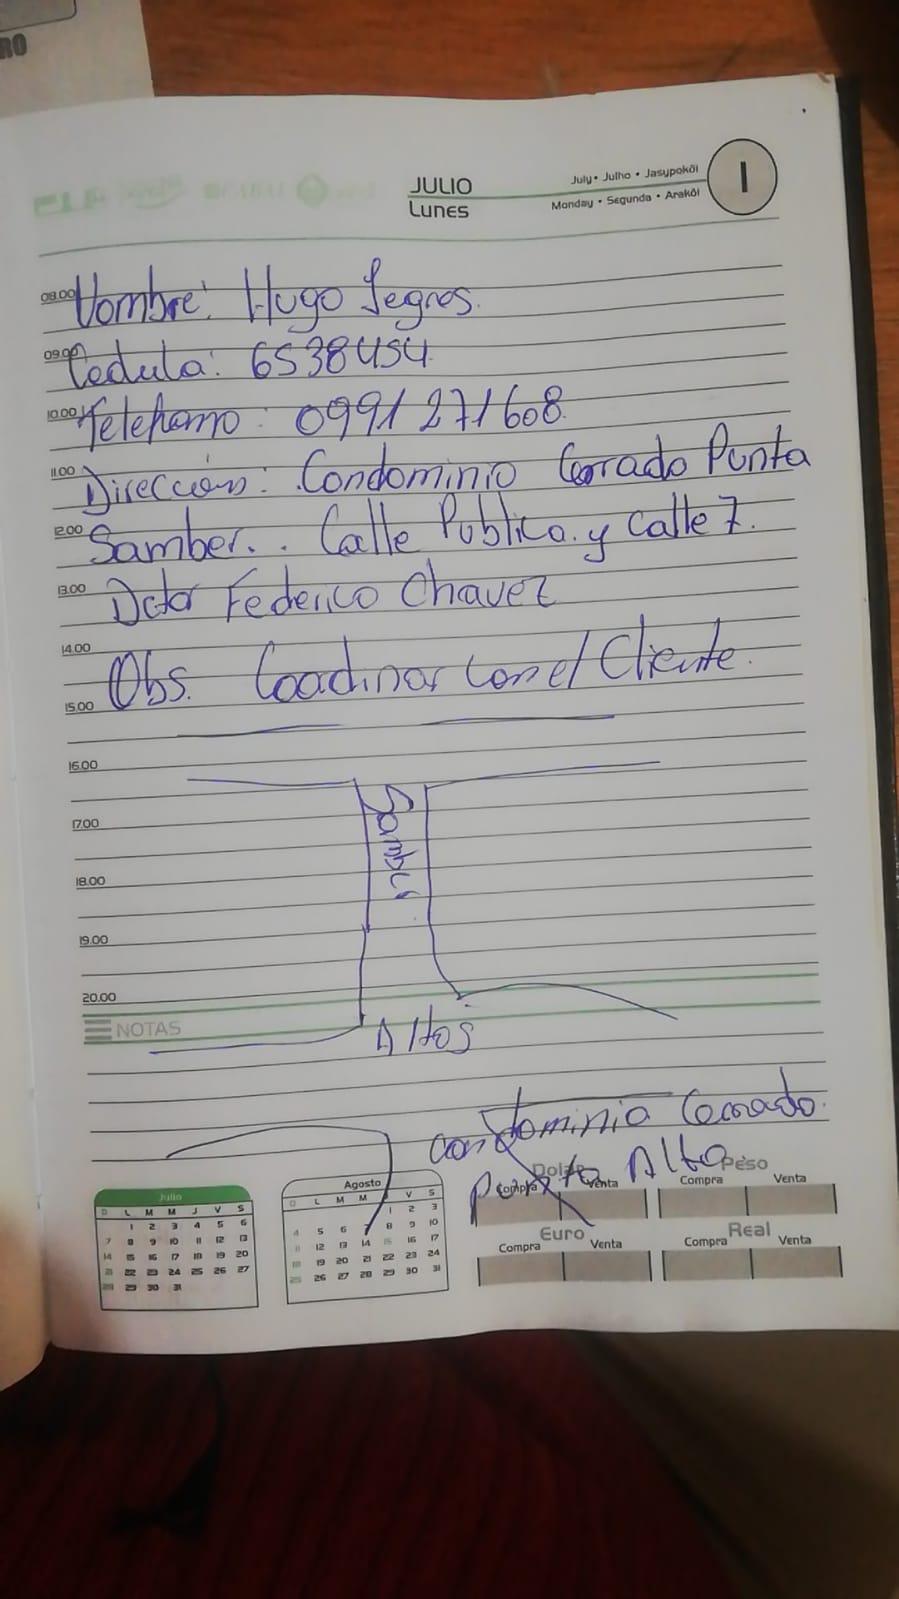 RO
JULIO
LUNES
July • Julho • Jasypokõi
Monday • Segunda • Arakõi
1
08.00 Nombre: Hugo Segnes.
09.00 Cedula: 6538454
10.00 Telefono: 0991 271608
11.00 Dirección: Condominio Cerrado Punta
12.00 Samber.. Calle Publica. y calle 7.
13.00 Dctor Federico Chavez
14.00
Obs. Coadinar con el Cliente.
15.00
16.00
17.00
18.00
19.00
20.00
NOTAS
Altos
condominia Cerrado.
Alto
Julio
D L M M J V S
1 2 3 4 5 6
7 8 9 10 11 12 13
14 15 16 17 18 19 20
21 22 23 24 25 26 27
28 29 30 31
Agosto
D L M M V S
1 2 3
4 5 6 7 8 9 10
11 12 13 14 15 16 17
18 19 20 21 22 23 24
25 26 27 28 29 30 31
Dolar
Compra Venta
Peso
Compra Venta
Euro
Compra Venta
Real
Compra Venta